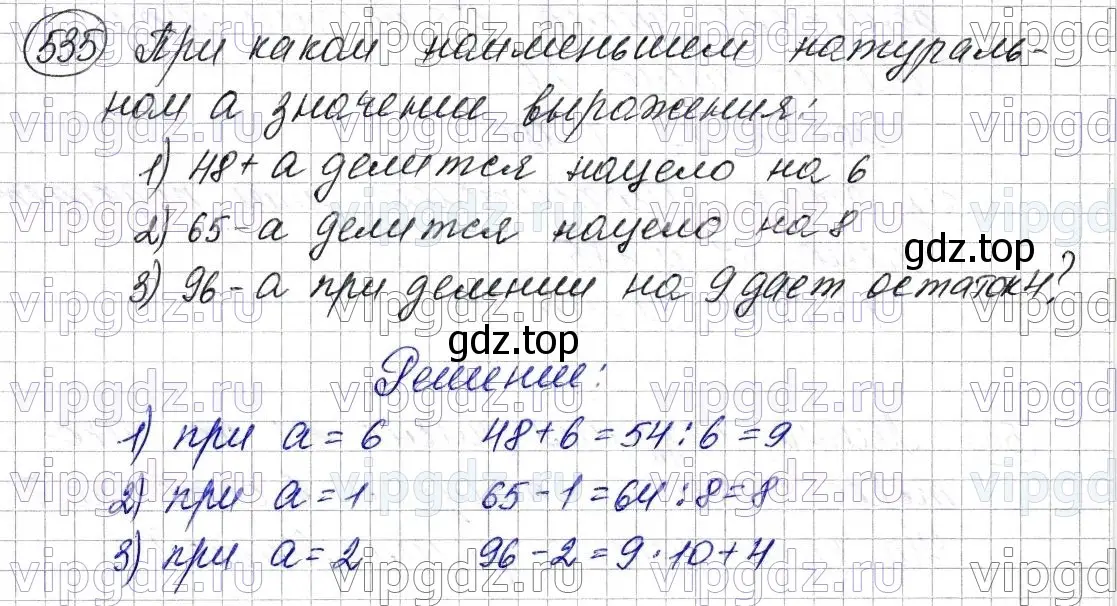 535 При каком наименьшем натураль-
ном а значении выражения:
1) 48 + а делится нацело на 6
2) 65 - а делится нацело на 8
3) 96 - а при делении на 9 дает остаток 4?
Решение:
1) при а = 6 48 + 6 = 54 : 6 = 9
2) при а = 1 65 - 1 = 64 : 8 = 8
3) при а = 2 96 - 2 = 9 · 10 + 4
gdz.top
gdz.top
vipgdz.ru